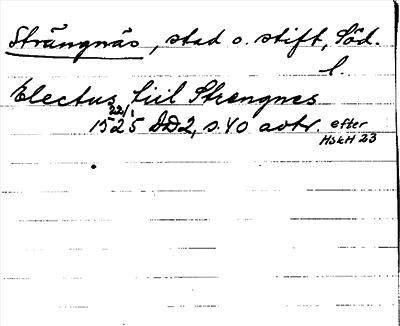 Strängnäs, stad o. stift, Söd.
l.
Electus tiil Strengnes
22/1
1525 DD2, s. 40 avtr. efter
HskH 23